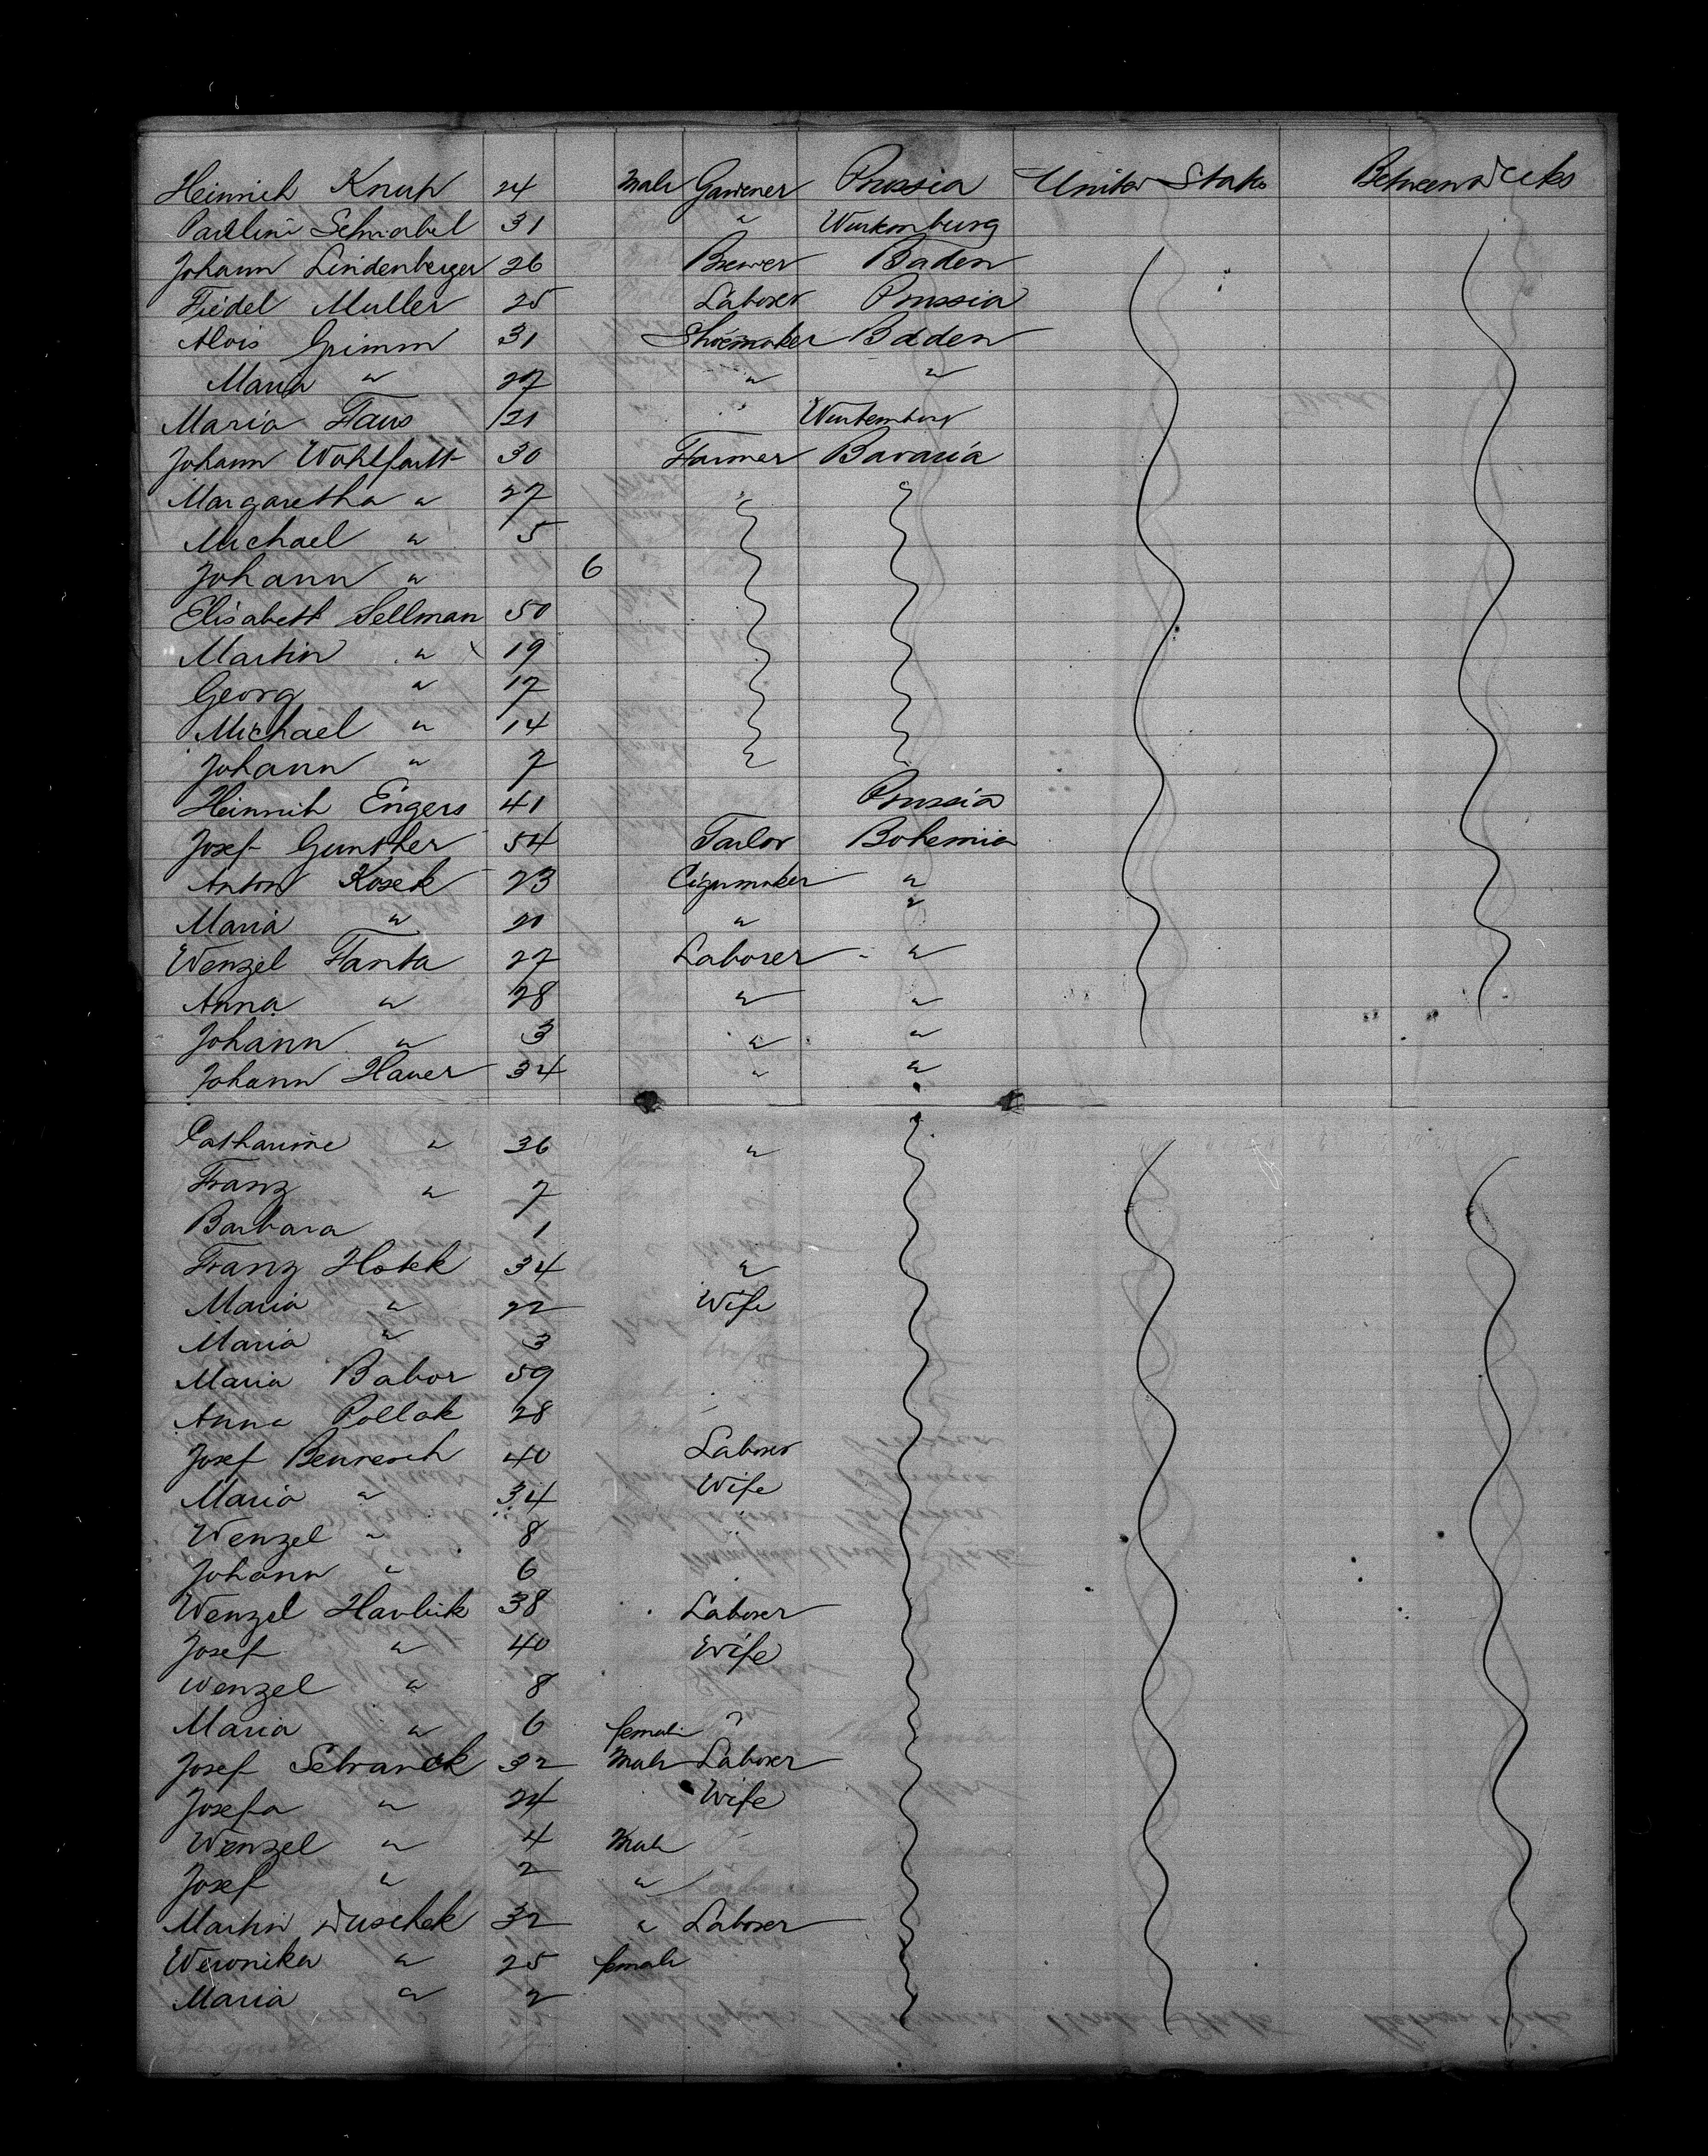 Heinrich Knup 24 Male Gardener Prussia United States Between Decks
Pauline Schnabel 31 " Wurtemburg
Johann Lindenberger 26 Brewer Baden
Fidel Muller 25 Laborer Prussia
Alois Grimm 31 Shoemaker Baden
Maria " 27 " "
Maria Faus 21 " Wurtemburg
Johann Wohlfartt 30 Farmer Bavaria
Margaretha " 27
Michael " 5
Johann " 6
Elisabeth Sellman 50
Martin " 19
Georg " 17
Michael " 14
Johann " 7
Heinrich Engers 41 Prussia
Josef Gunther 54 Tailor Bohemia
Anton Kosek 23 Cigarmaker "
Maria " 20 " "
Wenzel Fanta 27 Laborer "
Anna " 28 " "
Johann " 3 " "
Johann Hauer 34 " "
Catharine " 36 "
Franz " 7
Barbara 1
Franz Hotek 34 "
Maria " 22 Wife
Maria " 3
Maria Babor 59
Anna Pollak 28
Josef Benresch 40 Laborer
Maria " 34 Wife
Wenzel " 8
Johann " 6
Wenzel Havlik 38 Laborer
Josef " 40 Wife
Wenzel " 8
Maria " 6 female
Josef 32 Male Laborer
Josefa " 24 Wife
Wenzel " 4 Male
Josef " 2 "
Martin Duschek 32 " Laborer
Weronika " 25 female
Maria " 2